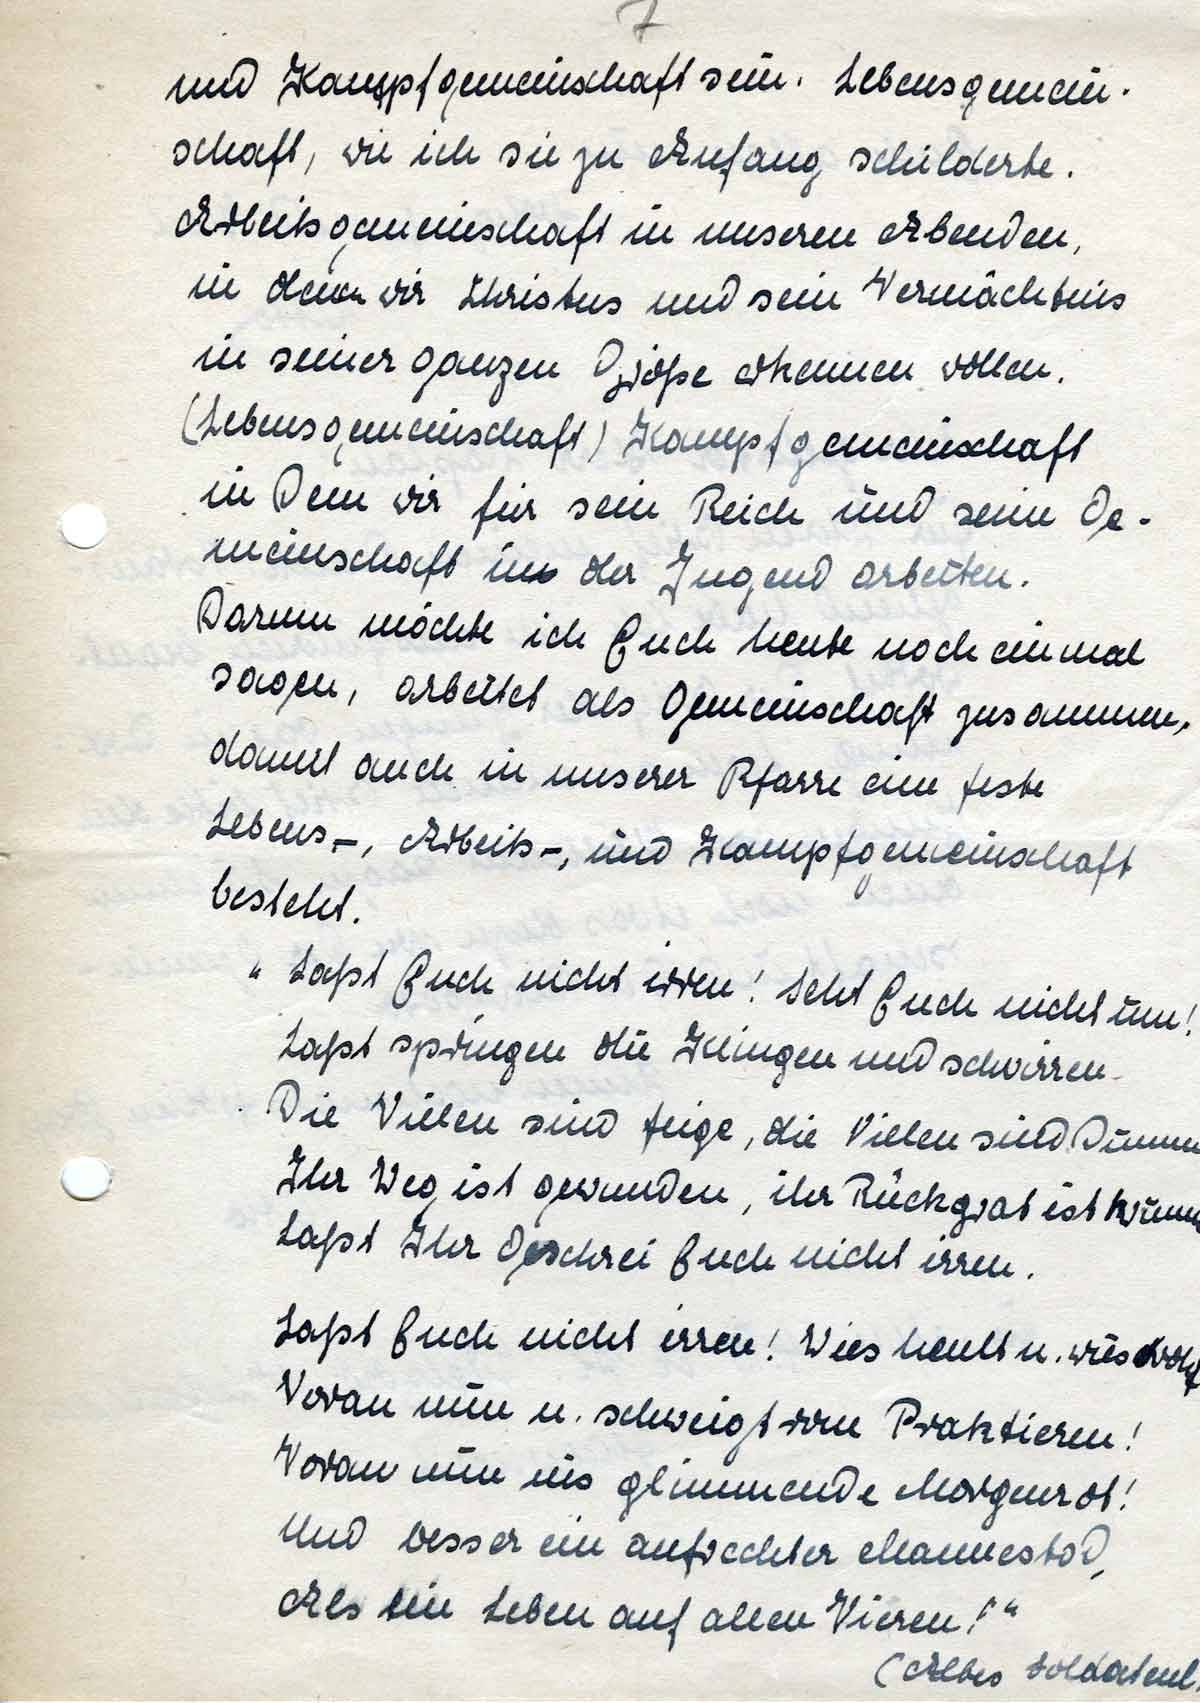 7
und Kampfgemeinschaft sein. Lebensgemein-
schaft, wie ich sie zu Anfang schilderte.
Arbeitsgemeinschaft in unseren Abenden,
in denen wir Christus und sein Vermächtnis
in seiner ganzen Größe erkennen wollen.
(Lebensgemeinschaft) Kampfgemeinschaft
in Dem wir für sein Reich und seine Ge-
meinschaft in der Jugend arbeiten.
Darum möchte ich Euch heute noch einmal
sagen, arbeitet als Gemeinschaft zusammen,
damit auch in unserer Pfarre eine feste
Lebens-, Arbeits-, und Kampfgemeinschaft
besteht.
" Laßt Euch nicht irren! Seht Euch nicht um!
Laßt springen die Klingen und schwirren.
Die Vielen sind feige, die Vielen sind Dumm
Ihr Weg ist gewunden, ihr Rückgrat ist krumm
Laßt Ihr Geschrei Euch nicht irren.
Laßt Euch nicht irren! Wies heult u. wies droht
Voran nun u. schweigt vom Praktieren!
Voran nun ins glimmende Morgenrot!
Und besser ein aufrechter Mannestod,
Als ein Leben auf allen Vieren!"
(Altes Soldatenl.